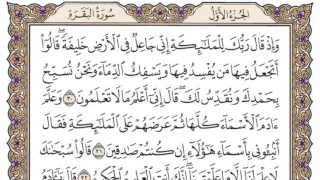 سُورَةُ البَقَرَةِ
الجُزْءُ الأَوَّلُ
وَإِذْ قَالَ رَبُّكَ لِلْمَلَٰٓئِكَةِ إِنِّي جَاعِلٌ فِي ٱلْأَرْضِ خَلِيفَةً ۖ قَالُوٓا۟
أَتَجْعَلُ فِيهَا مَن يُفْسِدُ فِيهَا وَيَسْفِكُ ٱلدِّمَآءَ وَنَحْنُ نُسَبِّحُ
بِحَمْدِكَ وَنُقَدِّسُ لَكَ ۖ قَالَ إِنِّيٓ أَعْلَمُ مَا لَا تَعْلَمُونَ ٣٠ وَعَلَّمَ
ءَادَمَ ٱلْأَسْمَآءَ كُلَّهَا ثُمَّ عَرَضَهُمْ عَلَى ٱلْمَلَٰٓئِكَةِ فَقَالَ
أَنۢبِـُٔونِي بِأَسْمَآءِ هَٰٓؤُلَآءِ إِن كُنتُمْ صَٰدِقِينَ ٣١ قَالُوا۟ سُبْحَٰنَكَ